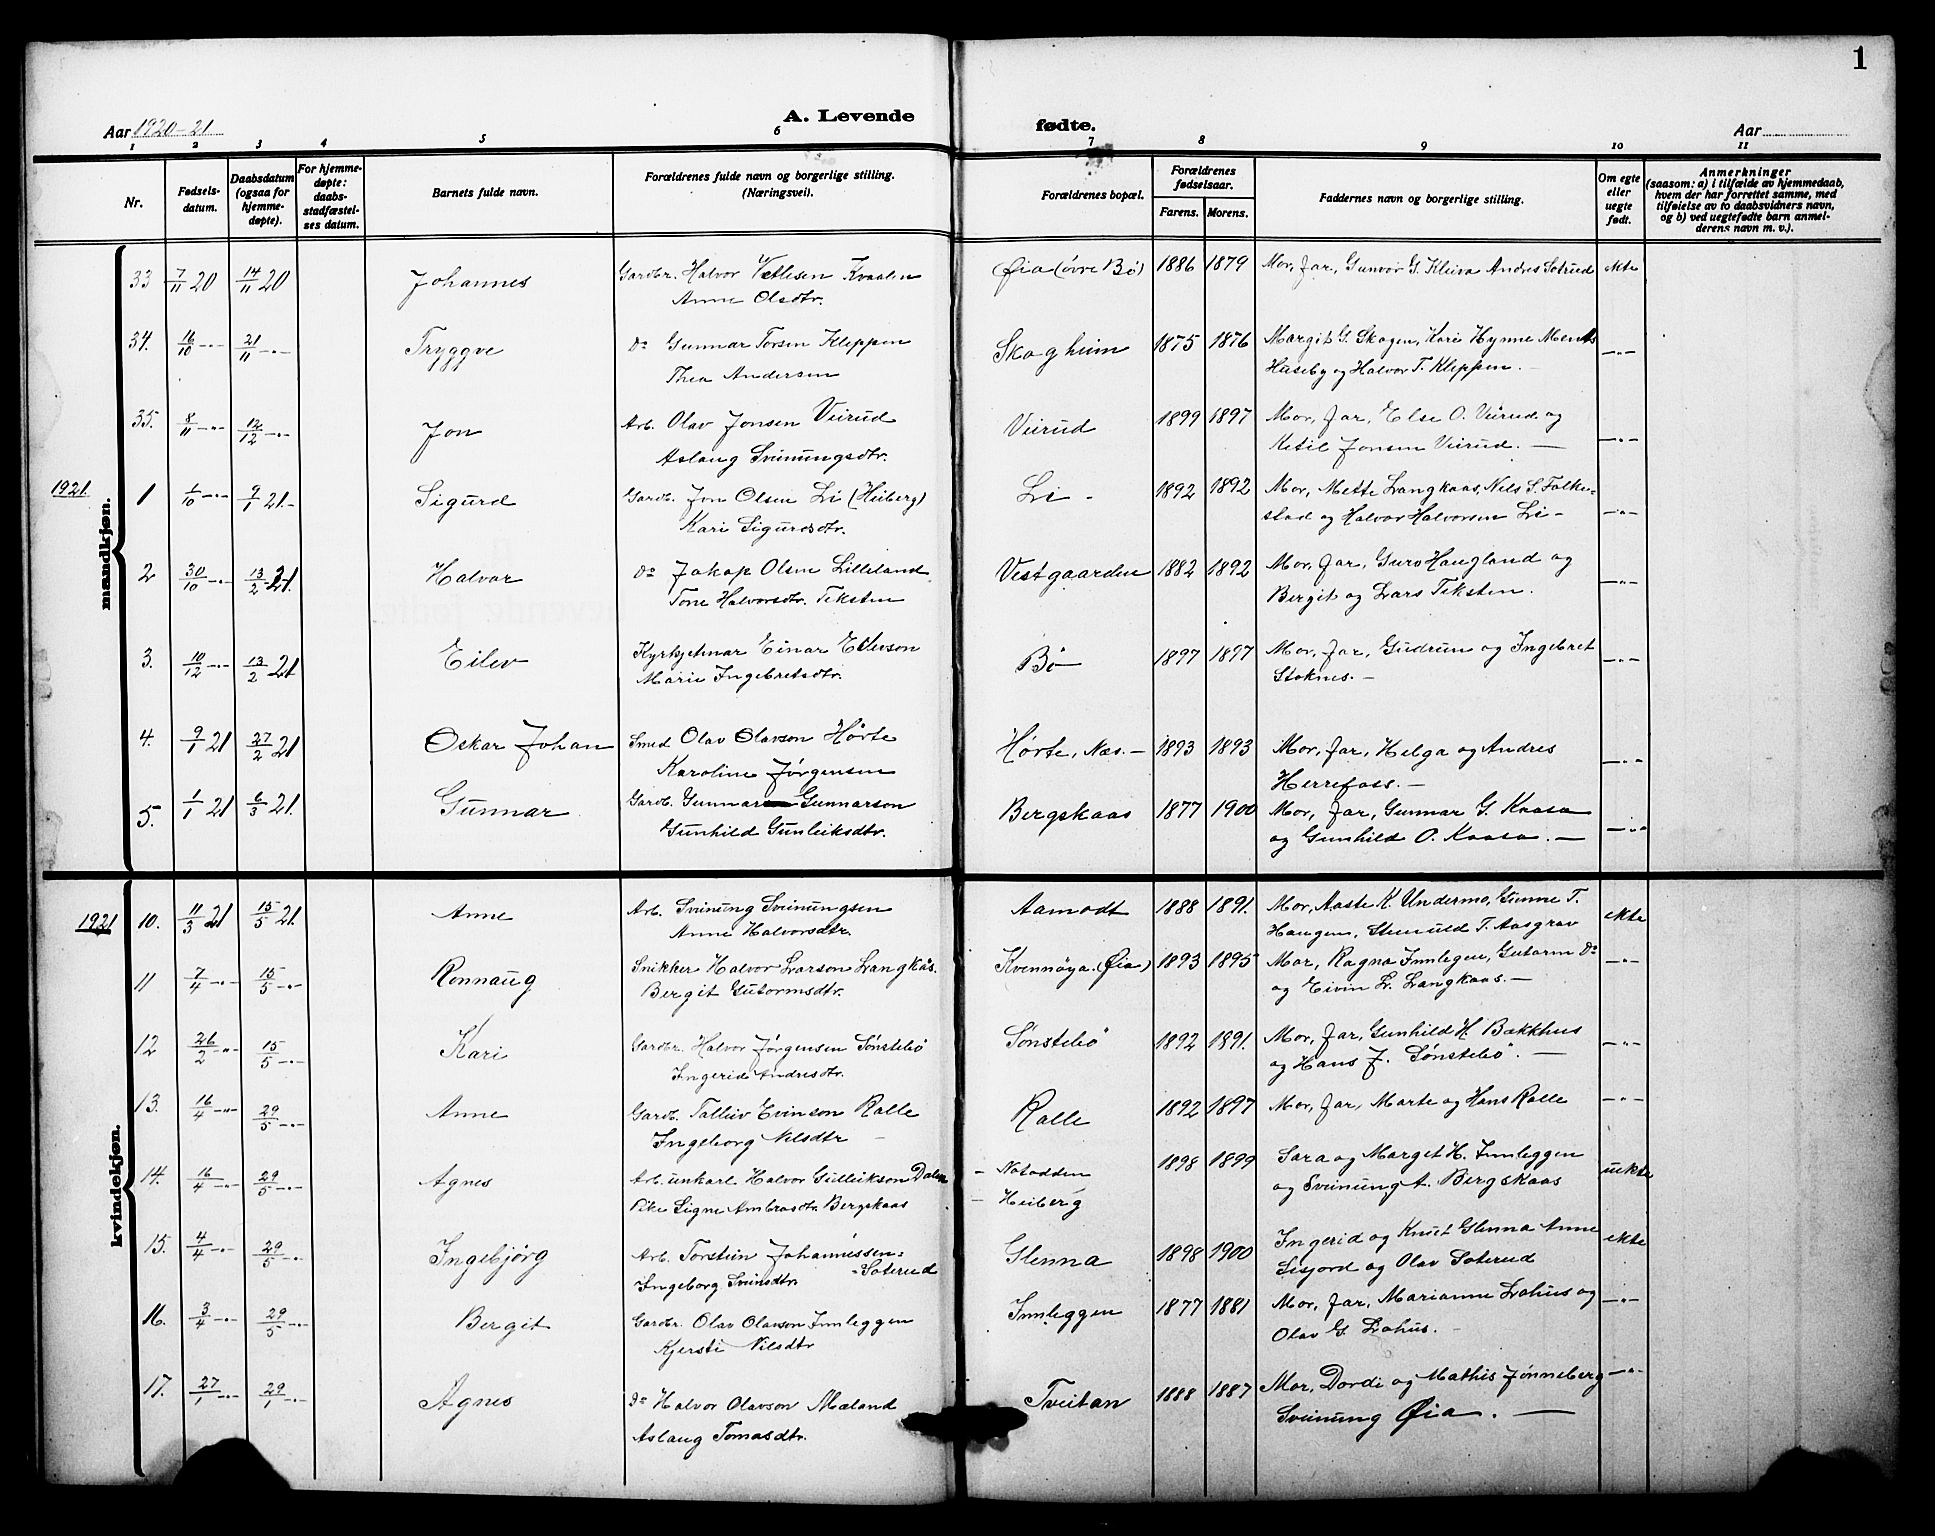 1
Aar 1920-21
A. Levende fødte.
Aar
1 2 3 4 5 6 7 8 9 10 11
Nr.
Fødsels-
datum.
Daabsdatum
(ogsaa for
hjemme-
døpte).
For hjemme-
døpte:
daabs-
stadfæstel-
ses datum.
Barnets fulde navn.
Forældrenes fulde navn og borgerlige stilling.
(Næringsvei).
Forældrenes bopæl.
Forældrenes
fødselsaar.
Farens. Morens.
Faddernes navn og borgerlige stilling.
Om egte
eller
uegte
født.
Anmerkninger
(saasom: a) i tilfælde av hjemmedaab,
hvem der har forrettet samme, med
tilføielse av to daabsvidners navn,
og b) ved uegtefødte barn anmel-
derens navn m. v.).
mandkjøn.
33 7/11 20 14/11 20 Johannes Gardbr. Halvor Vetlesen Kvaalen Øia (øvre Bø) 1886 1879 Mor, Far, Gunvor G. Kleiva Andres Soterud ekte
Anne Olsdtr.
34. 16/10 -"- 21/11 -"- Tryggve Do Gunnar Torsen Kleppen Skogheim 1875 1876 Margit G. Skogen, Kari Hynne
Thea Andersen Haseby og Halvor T. Kleppen. - -"-
35. 8/11 -"- 12/12 -"- Jon Arb. Olav Jonsen Veirud Veirud 1899 1897 Mor, Far, Else O. Veirud og
Aslaug Sveinungsdtr. Ketil Jonsen Veirud. - -"-
1921 1 1/10 -"- 9/1 21.- Sigurd Gardb. Jon Olsen Li (Heiberg) Li - 1892 1892 Mor, Mette Langkaas, Nils S. Folke-
Kari Sigurdsdtr. stad og Halvor Halvorsen Li - -"-
2 30/10 -"- 13/2 21. Halvor Do Jakop Olsen Lilleland Vestgaarden 1882 1892 Mor, Far, Guro Haugland og
Tone Halvorsdtr. Teksten Bergit og Lars Teksten. -"-
3. 10/12 -"- 13/2 21 Eilev Kyrkjetenar Einar Eilevson Bø 1897 1897 Mor, Far, Gudrun og Ingebret
Marie Ingebretsdtr. Stoknes. - -"-
4. 9/1 21 27/2 21 Oskar Johan Smed Olav Olavson Hørte Hørte, Næs. - 1893 1893 Mor, Far, Helga og Andres
Karoline Jørgensen Herrefoss. - -"-
5. 1/1 21 6/3 21. Gunnar Gardb. Gunnar Gunnarson Bergskaas 1877 1900 Mor, Far, Gunnar G. Kaasa
Gunhild Gunleiksdtr. og Gunhild O. Kaasa. - -"-
kvindekjøn.
1921 10. 11/3 21 15/5 21. Anne Arb. Sveinung Sveinungsen Aamodt 1888 1891. Mor, Aaste K. Undermo, Gunne T. ekte
Anne Halvorsdtr. Haugen, Steinuld T. Aasgrav
11 7/4 -"- 15/5 -"- Ronnaug Snikker Halvor Larson Langkås. Kvennøya. (Øia) 1893 1895 Mor, Ragna Innlegen, Gutorm Do -"-
Bergit Gutormsdtr. og Eivin L. Langkaas. -
12 26/2 -"- 15/5 -"- Kari Gardbr. Halvor Jørgensen Sønstebø Sønstebø 1892 1891. Mor, Far, Gunhild H. Bækkhus -"-
Ingerid Andresdtr. og Hans J. Sønstebø. -
13. 16/4 -"- 29/5 -"- Anne Gardb. Talleiv Evinson Ralle Ralle 1892 1897 Mor, Far, Marte og Hans Ralle -"-
Ingeborg Nilsdtr -
14. 16/4 -"- 29/5 -"- Agnes Arb. unkarl Halvor Gulleikson Dalen - Notodden 1898 1899 Sara og Marget H. Innleggen uekte
Pike Signe Ambrosdtr. Bergskaas - Heiberg og Sveinung A. Bergskaas
15. 4/4 -"- 29/5 -"- Ingebjørg Arb. Torstein Johannessen= Glenna 1898 1900 Ingerid og Knut Glenna Anne ekte
Ingeborg Sveinsdtr. =Soterud Lisjord og Olav Soterud
16. 3/4 -"- 29/5 -"- Bergit Gardbr. Olav Olavson Innleggen Innleggen 1877 1881 Mor, Far, Marianne Lohus og -"-
Kjersti Nilsdtr Olav G. Lohus. -
17. 27/1 -"- 29/1 -"- Agnes Do Halvor Olavson Mæland Tveitan 1888 1887 Mor, Dordi og Mathis Jønneberg -"-
Aslaug Tomasdtr. Sveinung Øia. -